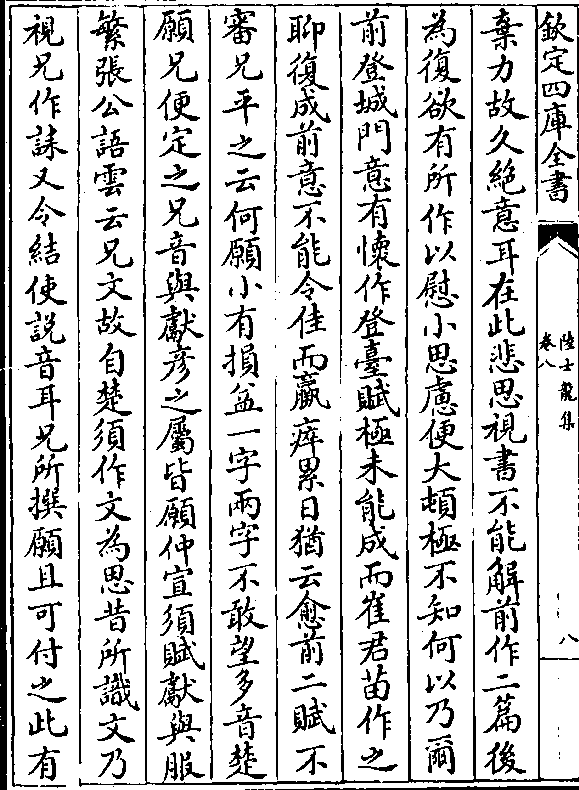 欽定四庫全書
陸士龍集
卷八
八
棄力故久絕意耳在此悲思視書不能解前作二篇後
為復欲有所作以慰小思慮便大頓極不知何以乃爾
前登城門意有懷作登臺賦極未能成而崔君苗作之
聊復成前意不能令佳而羸瘁累日猶云愈前二賦不
審兄平之云何願小有損益一字兩字不敢望多音楚
願兄便定之兄音與獻彥之屬皆願仲宣須賦獻與服
繁張公語雲云兄文故自楚須作文為思昔所識文乃
視兄作誄又令結使説音耳兄所撰願且可付之此有